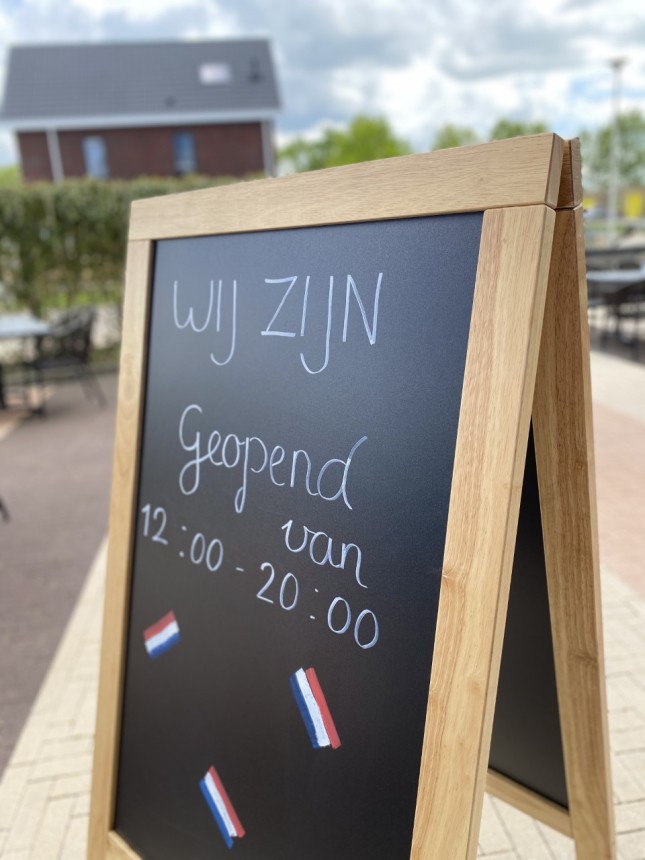 WIJ ZIJN
Geopend
van
12:00 - 20:00